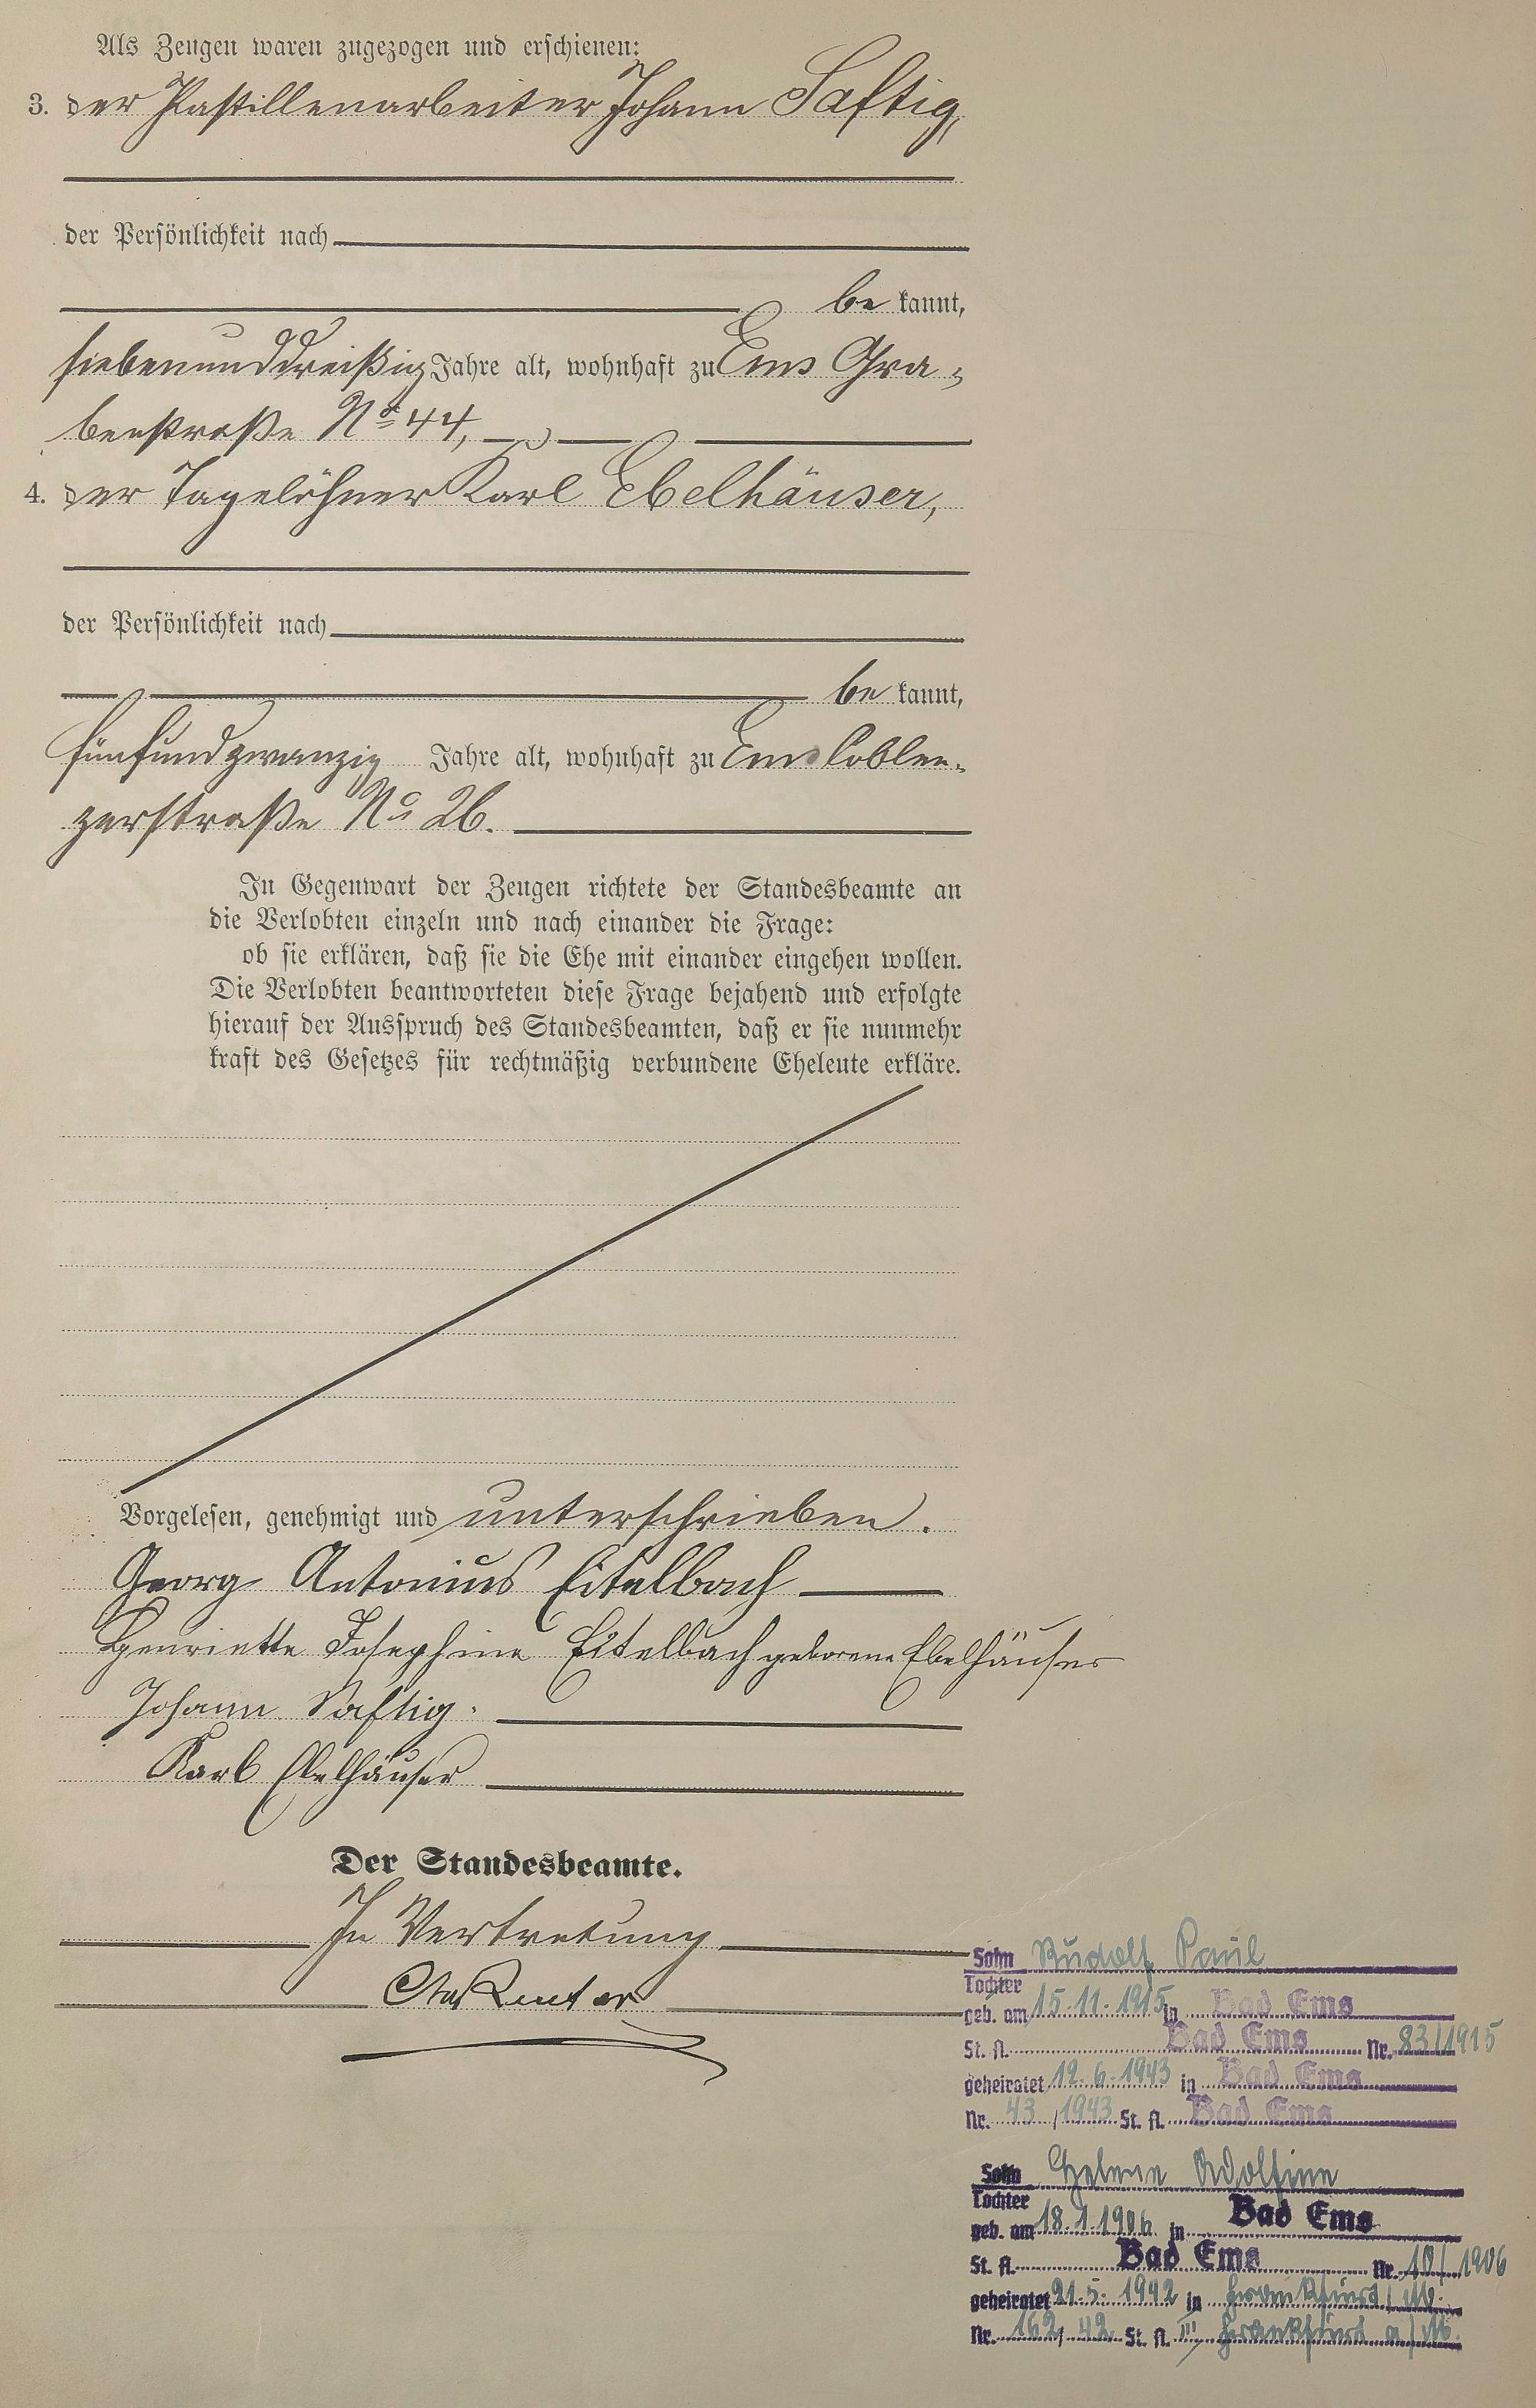 Als Zeugen waren zugezogen und erschienen:
3. der Pastillenarbeiter Johann Saftig,
der Persönlichkeit nach
be kannt,
siebenunddreißig Jahre alt, wohnhaft zu Ems Gra-
benstraße No 44,
4. der Tagelöhner Karl Ebelhäuser,
der Persönlichkeit nach
be kannt,
fünfundzwanzig Jahre alt, wohnhaft zu Ems Coblen-
zerstraße No 26.
In Gegenwart der Zeugen richtete der Standesbeamte an
die Verlobten einzeln und nach einander die Frage:
ob sie erklären, daß sie die Ehe mit einander eingehen wollen.
Die Verlobten beantworteten diese Frage bejahend und erfolgte
hierauf der Ausspruch des Standesbeamten, daß er sie nunmehr
kraft des Gesetzes für rechtmäßig verbundene Eheleute erkläre.
Vorgelesen, genehmigt und unterschrieben.
Georg Antonius Eitelbach
Henriette Josephine Eitelbach geborene Ebelhäuser
Johann Saftig.
Karl Ebelhäuser
Der Standesbeamte.
In Vertretung
Sohn Rudolf Paul
Tochter
geb. am 15.11.1915 in Bad Ems
St. A. Bad Ems Nr. 83/1915
geheiratet 12.6.1943 in Bad Ems
Nr. 43/1943 St. A. Bad Ems
Sohn Helene Adolfine
Tochter
geb. am 18.1.1906 in Bad Ems
St. A. Bad Ems Nr. 10/1906
geheiratet 21.5.1942 in Frankfurt/M.
Nr. 162/42 St. A. III Frankfurt a/M.